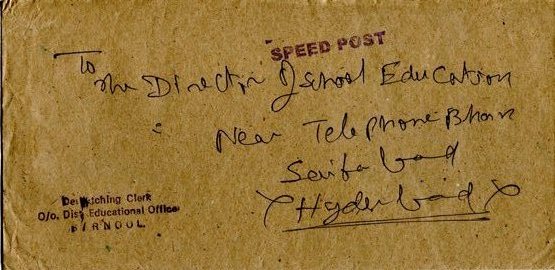 SPEED POST
To
The Director School Education
Near Telephone Bhan
Saifabad
Hyderabad
Despatching Clerk
O/o. Dist. Educational Officer
KURNOOL